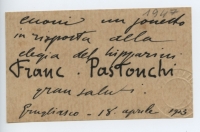 1947
enoni un sonetto
in risposta alla
elegia del hipparini.
Franc. Pastonchi
gran saluti.
Grugliasco - 18 aprile 1943